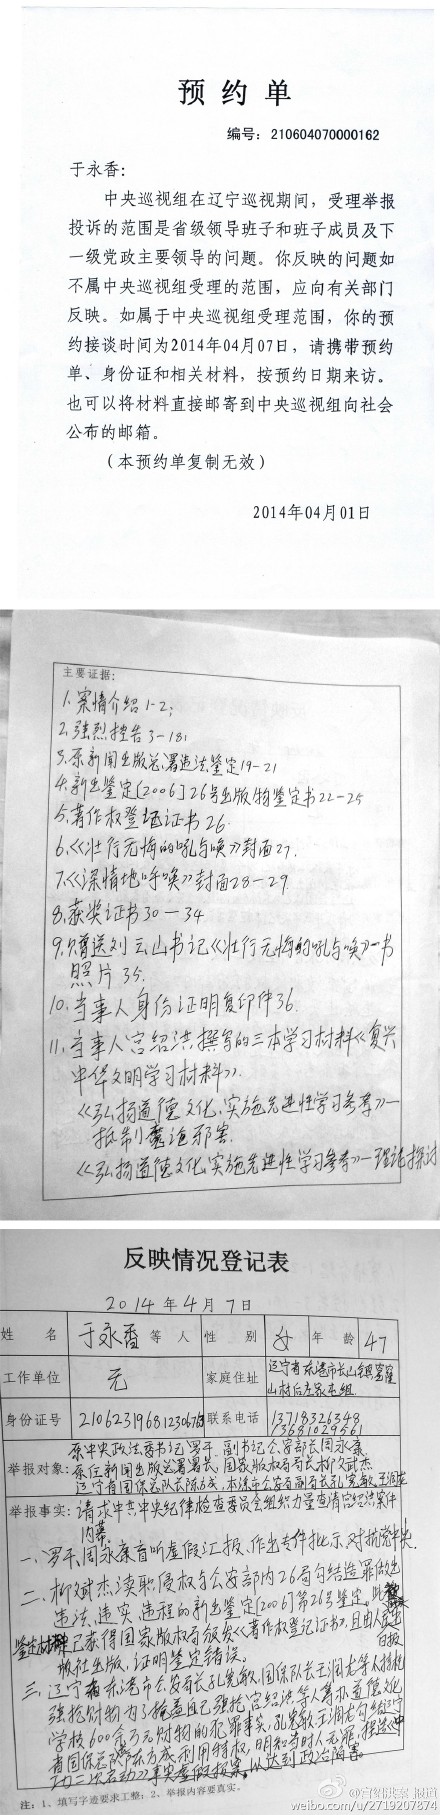 预约单
编号：210604070000162
于永香：
中央巡视组在辽宁巡视期间，受理举报
投诉的范围是省级领导班子和班子成员及下
一级党政主要领导的问题。你反映的问题如
不属中央巡视组受理的范围，应向有关部门
反映。如属于中央巡视组受理范围，你的预
约接谈时间为2014年04月07日，请携带预约
单、身份证和相关材料，按预约日期来访。
也可以将材料直接邮寄到中央巡视组向社会
公布的邮箱。
（本预约单复制无效）
2014年04月01日
主要证据：
1.案情介绍1-2；
2.强烈控告3-18；
3.原新闻出版总署违法鉴定19-21
4.新出鉴定［2006］26号出版物鉴定书22-25
5.著作权登记证书26.
6.《壮行无悔的吼与唤》封面27.
7.《深情地呼唤》封面28-29
8.获奖证书30-34
9.赠送刘云山书记《壮行无悔的吼与唤》一书
照片35.
10.当事人身份证明复印件36.
11.当事人宫绍洪撰写的三本学习材料《复兴
中华文明学习材料》.
《弘扬道德文化、实施先进性学习参考》一
抵制魔诡邪害
《弘扬道德文化、实施先进性学习参考》一理论探讨
反映情况登记表
2014年4月7日
姓名 于永香等人 性别 女 年龄 47
工作单位 无 家庭住址 辽宁省东港市长山镇窟窿
山村后左家屯组
身份证号 联系电话 13718326348
13681029561
举报对象：原中央政法委书记罗干，副书记公安部长周永康
原任新闻出版总署署长，国家版权局局长柳斌杰
辽宁省国保总队长陈方成，本港市公安局副局长孔宪敏，王润龙
举报事实：请求中共中央纪律检查委员会组织力量查清宫绍洪案件
内幕.
一、罗干、周永康盲听虚假汇报、作出专件批示、对抗党中央.
二、柳斌杰渎职侵权与公安部内26局勾结造罪做出
违法、违实、违程的新出鉴定［2006］第26号鉴定。此
鉴定材料已获得国家版权局颁发《著作权登记证书》，且由人民日报
出版社出版，证明鉴定错误。
三、辽宁省东港市公安局长孔宪敏，国保队长王润龙等人
强抢财物为了掩盖自己强抢宫绍洪等人筹办道德文化
学校600余万元财物的犯罪事实，孔宪敏、王润龙勾结辽宁
省国保总队陈方成利用特权，明知当时人无罪，
以达到政治陷害.
注：1、填写字迹要求工整；2、举报内容要真实。
@宫绍洪案 报道
weibo.com/u/2719207874